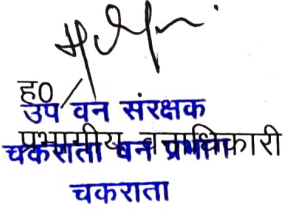 ह0/
उप वन संरक्षक
प्रभागीय वनाधिकारी
चकराता वन प्रभाग
चकराता